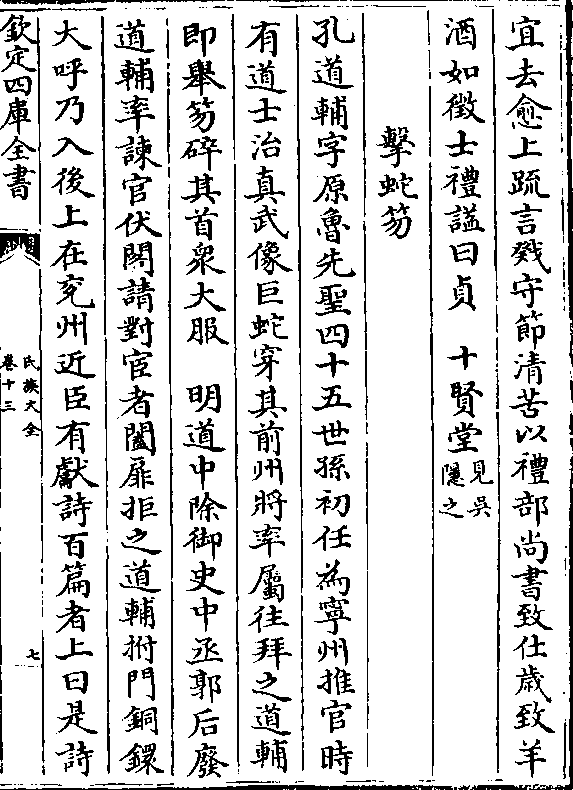 宜去愈上疏言戣守節清苦以禮部尚書致仕歲致羊
酒如徵士禮謚曰貞　十賢堂見吳隱之
擊蛇笏
孔道輔字原魯先聖四十五世孫初任為寧州推官時
有道士治真武像巨蛇穿其前州將率屬往拜之道輔
即舉笏碎其首衆大服　明道中除御史中丞郭后廢
道輔率諫官伏閤請對宦者闔扉拒之道輔拊門銅鐶
大呼乃入後上在兖州近臣有獻詩百篇者上曰是詩
欽定四庫全書
氏族大全
卷十三
七